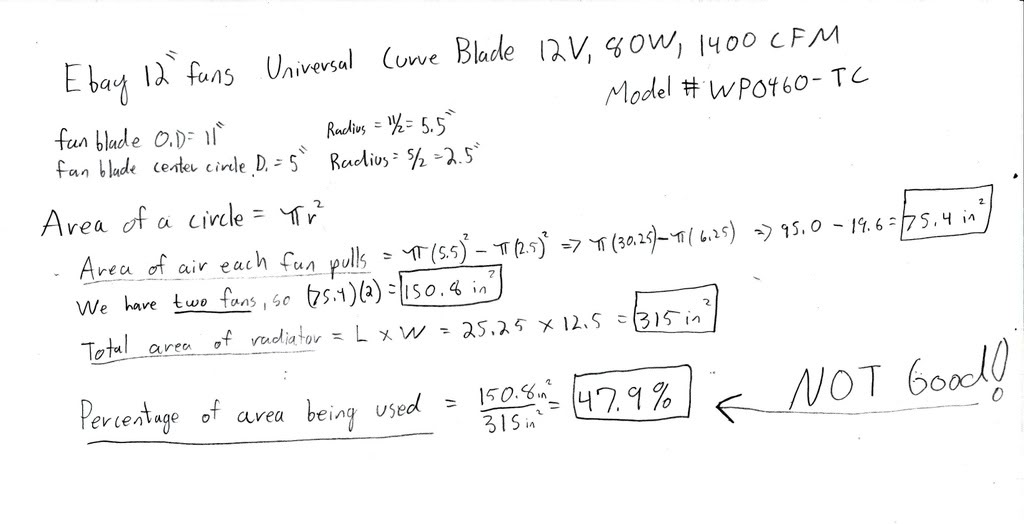 Ebay 12" fans Universal Curve Blade 12V, 80W, 1400 CFM
Model # WP0460-TC
fan blade O.D = 11" Radius = 11/2 = 5.5"
fan blade center circle D. = 5" Radius = 5/2 = 2.5"
Area of a circle = πr²
Area of air each fan pulls = π(5.5)² - π(2.5)² => π(30.25) - π(6.25) => 95.0 - 19.6 = 75.4 in²
We have two fans, so (75.4)(2) = 150.8 in²
Total area of radiator = L x W = 25.25 x 12.5 = 315 in²
Percentage of area being used = 150.8 in² / 315 in² = 47.9% ← NOT Good!